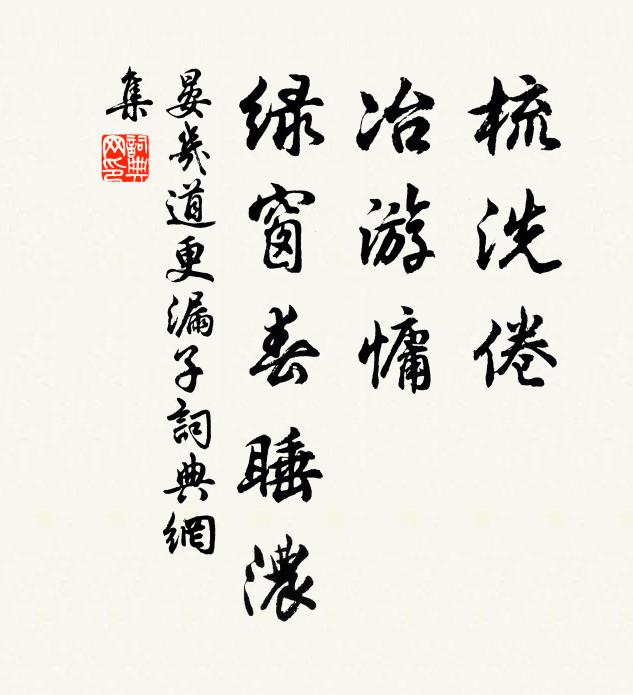 梳洗倦
冶游慵
绿窗春睡濃
晏幾道更漏子詞典網
集
詞典網印